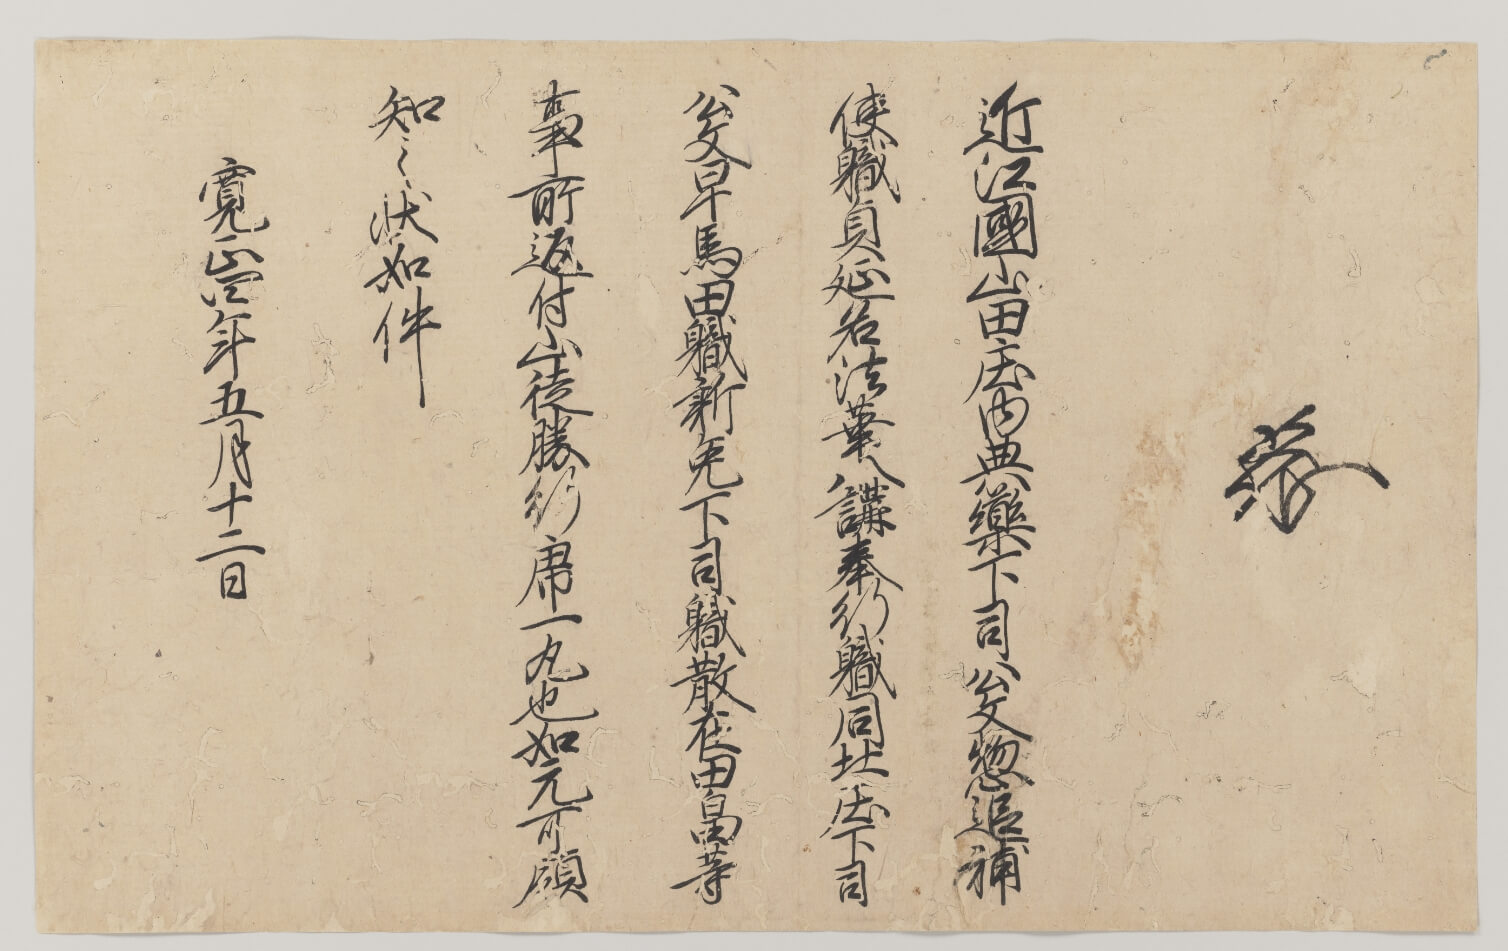 近江國山田庄内典藥下司公文惣追補
使職貞延名法華八講奉行職同北庄下司
公文早馬田職新免下司職散在田畠等
事所返付山徒勝行房一丸也如元可領
知之状如件
寛正四年五月十二日